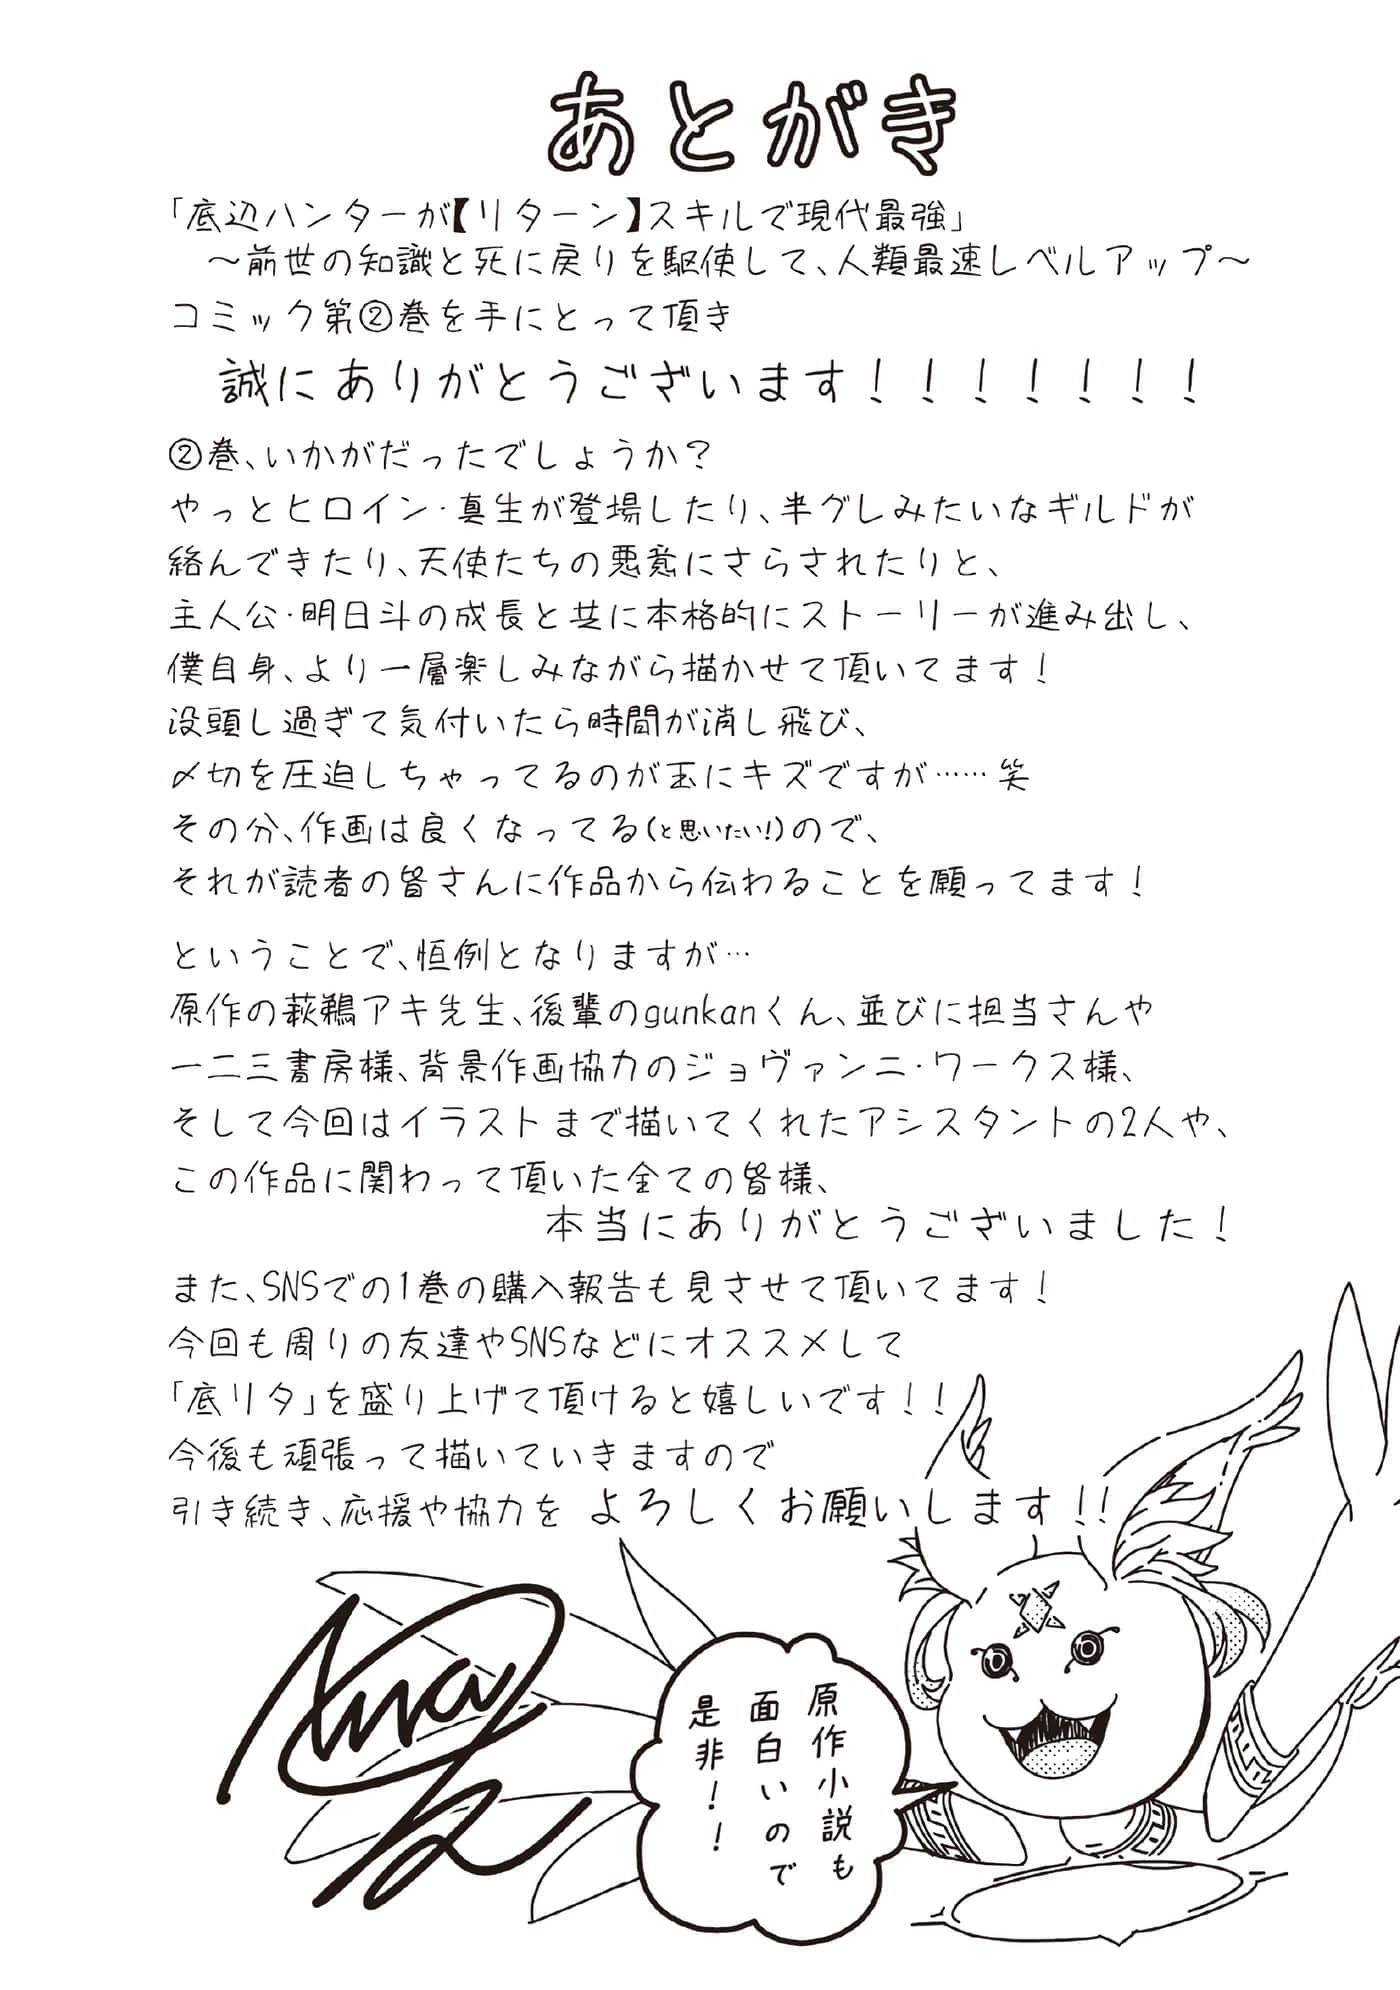 あとがき
「底辺ハンターが【リターン】スキルで現代最強」
～前世の知識と死に戻りを駆使して、人類最速レベルアップ～
コミック第②巻を手にとって頂き
誠にありがとうございます！！！！！！！
②巻、いかがだったでしょうか？
やっとヒロイン・真生が登場したり、半グレみたいなギルドが
絡んできたり、天使たちの悪意にさらされたりと、
主人公・明日斗の成長と共に本格的にストーリーが進み出し、
僕自身、より一層楽しみながら描かせて頂いてます！
没頭し過ぎて気付いたら時間が消し飛び、
〆切を圧迫しちゃってるのが玉にキズですが……笑
その分、作画は良くなってる(と思いたい!)ので、
それが読者の皆さんに作品から伝わることを願ってます！
ということで、恒例となりますが…
原作の萩鵜アキ先生、後輩のgunkanくん、並びに担当さんや
一二三書房様、背景作画協力のジョヴァンニ・ワークス様、
そして今回はイラストまで描いてくれたアシスタントの2人や、
この作品に関わって頂いた全ての皆様、
本当にありがとうございました！
また、SNSでの1巻の購入報告も見させて頂いてます！
今回も周りの友達やSNSなどにオススメして
「底リタ」を盛り上げて頂けると嬉しいです！！
今後も頑張って描いていきますので
引き続き、応援や協力を よろしくお願いします！！
原作小説も
面白いので
是非！！